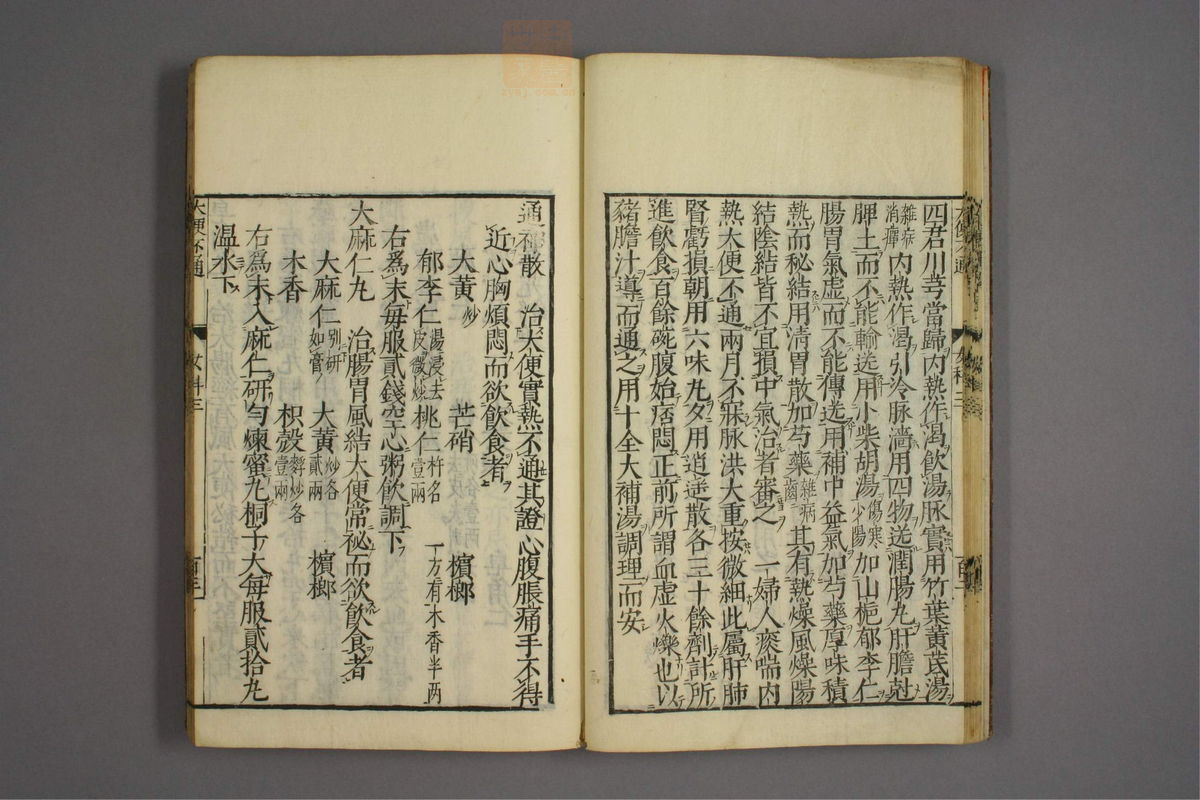 四君川芎當歸内熱作渴飲湯脉實用竹葉黄芪湯
雜病消癉内熱作渴引冷脉濇用四物送潤腸丸肝膽尅
脾土而不能輸送用小柴胡湯傷寒少陽加山梔郁李仁
腸胃氣虚而不能傳送用補中益氣加芍藥厚味積
熱而秘結用清胃散加芍藥雜病齒其有熱燥風燥陽
結陰結皆不宜損中氣治者審之 一婦人痰喘内
熱大便不通兩月不寐脉洪大重按微細此屬肝肺
腎虧損朝用六味丸夕用逍遥散各三十餘劑計所
進飲食百餘碗腹始痞悶正前所謂血虚火爍也以
猪膽汁導而通之用十全大補湯調理而安
女科三
通神散 治大便實熱不通其證心腹脹痛手不得
近心胸煩悶而欲飲食者
大黄炒 芒硝 檳榔
郁李仁湯浸去皮微炒 桃仁杵各壹兩 一方有木香半两
右爲末每服貳錢空心粥飲調下
大麻仁丸 治腸胃風結大便常祕而欲飲食者
大麻仁别研如膏 大黄炒各貳兩 檳榔
木香 枳殻麩炒各壹兩
右爲末入麻仁研勻煉蜜丸桐子大每服貳拾丸
温水下
大便不通 女科三